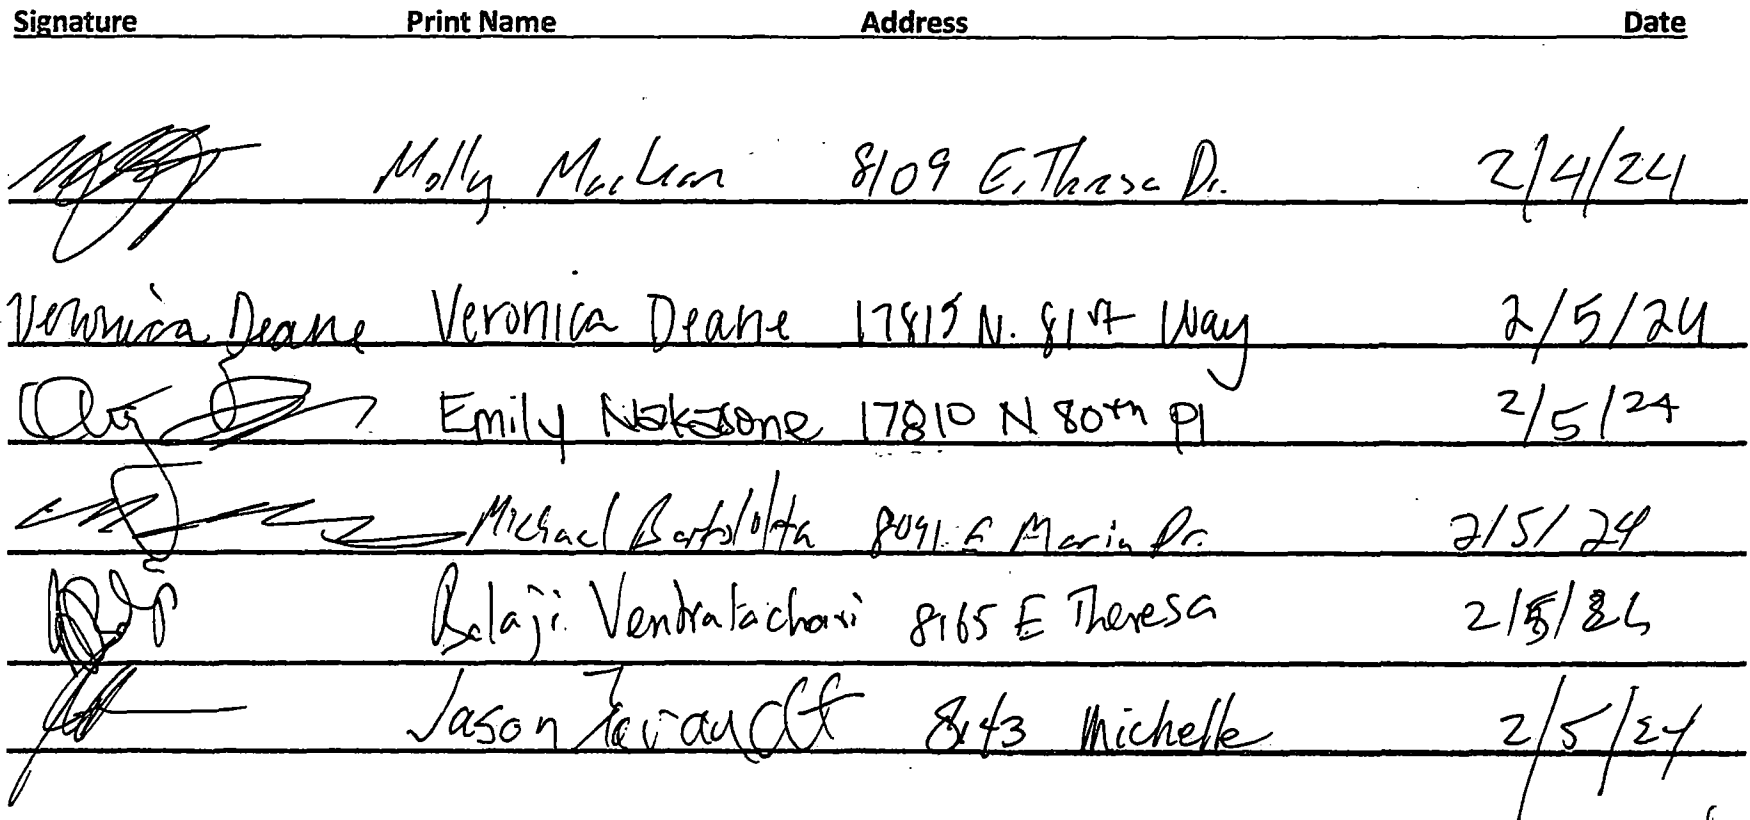 Signature Print Name Address Date
Molly 8109 E. Theresa Dr. 2/4/24
Veronica Deane Veronica Deane 17815 N. 81st Way 2/5/24
Emily Nakasone 17810 N 80th Pl 2/5/24
Michael Bartolotta 8091 E Maria Dr. 2/5/24
Balaji 8165 E Theresa
Jason 8143 Michelle 2/5/24